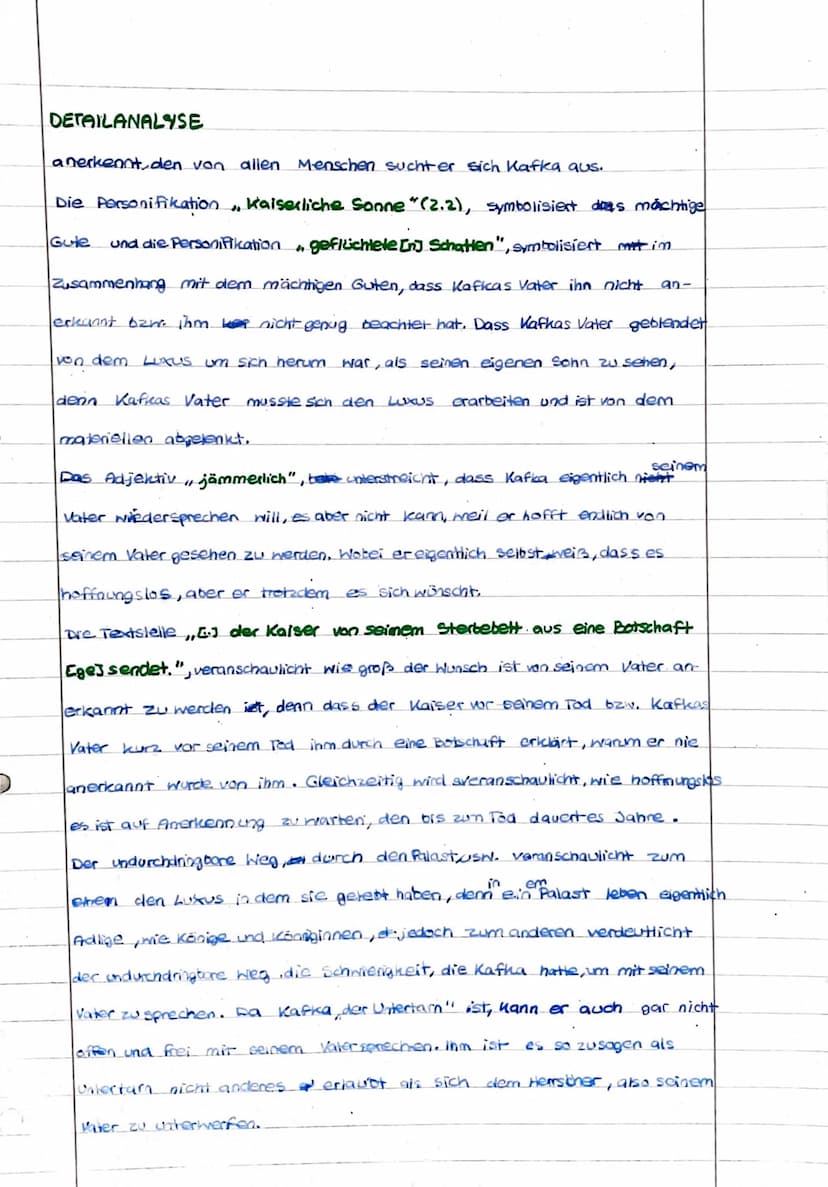 DETAILANALYSE
anerkennt, den von allen Menschen suchter sich Kafka aus.
Die Personifikation „Kaiserliche Sonne" (2.2), symbolisiert das mächtige
Gute und die Personifikation „geflüchtete[n] Schatten", symbolisiert mit im
Zusammenhang mit dem mächtigen Guten, dass Kafkas Vater ihn nicht an-
erkannt bzw. ihm nicht genug beachtet hat. Dass Kafkas Vater geblendet
von dem Luxus um sich herum war, als seinen eigenen Sohn zu sehen,
denn Kafkas Vater musste sich den Luxus erarbeiten und ist von dem
materiellen abgelenkt.
Das Adjektiv „jämmerlich", unterstreicht, dass Kafka eigentlich nicht seinem
Vater wiedersprechen will, es aber nicht kann, weil er hofft endlich von
seinem Vater gesehen zu werden. Wobei er eigentlich selbst weiß, dass es
hoffnungslos, aber er trotzdem es sich wünscht.
Die Textstelle „[.] der Kaiser von seinem Sterbebett aus eine Botschaft
[ge]sendet.", veranschaulicht wie groß der Wunsch ist von seinem Vater an-
erkannt zu werden ist, denn dass der Kaiser vor seinem Tod bzw. Kafkas
Vater kurz vor seinem Tod ihm durch eine Botschaft erklärt, warum er nie
anerkannt wurde von ihm. Gleichzeitig wird averanschaulicht, wie hoffnungslos
es ist auf Anerkennung zu warten, den bis zum Tod dauert es Jahre.
Der undurchdringbare Weg, durch den Palast usw. veranschaulicht zum
einen den Luxus in dem sie gelebt haben, denn in einem Palast leben eigentlich
Adlige, wie Könige und Königinnen, jedoch zum anderen verdeutlicht
der undurchdringbare Weg die Schwierigkeit, die Kafka hatte, um mit seinem
Vater zu sprechen. Da Kafka „der Untertarn" ist, kann er auch gar nicht
offen und frei mit seinem Vater sprechen. Ihm ist es so zusagen als
Untertarn nicht anderes erlaubt als sich dem Herrscher, also seinem
Vater zu unterwerfen.